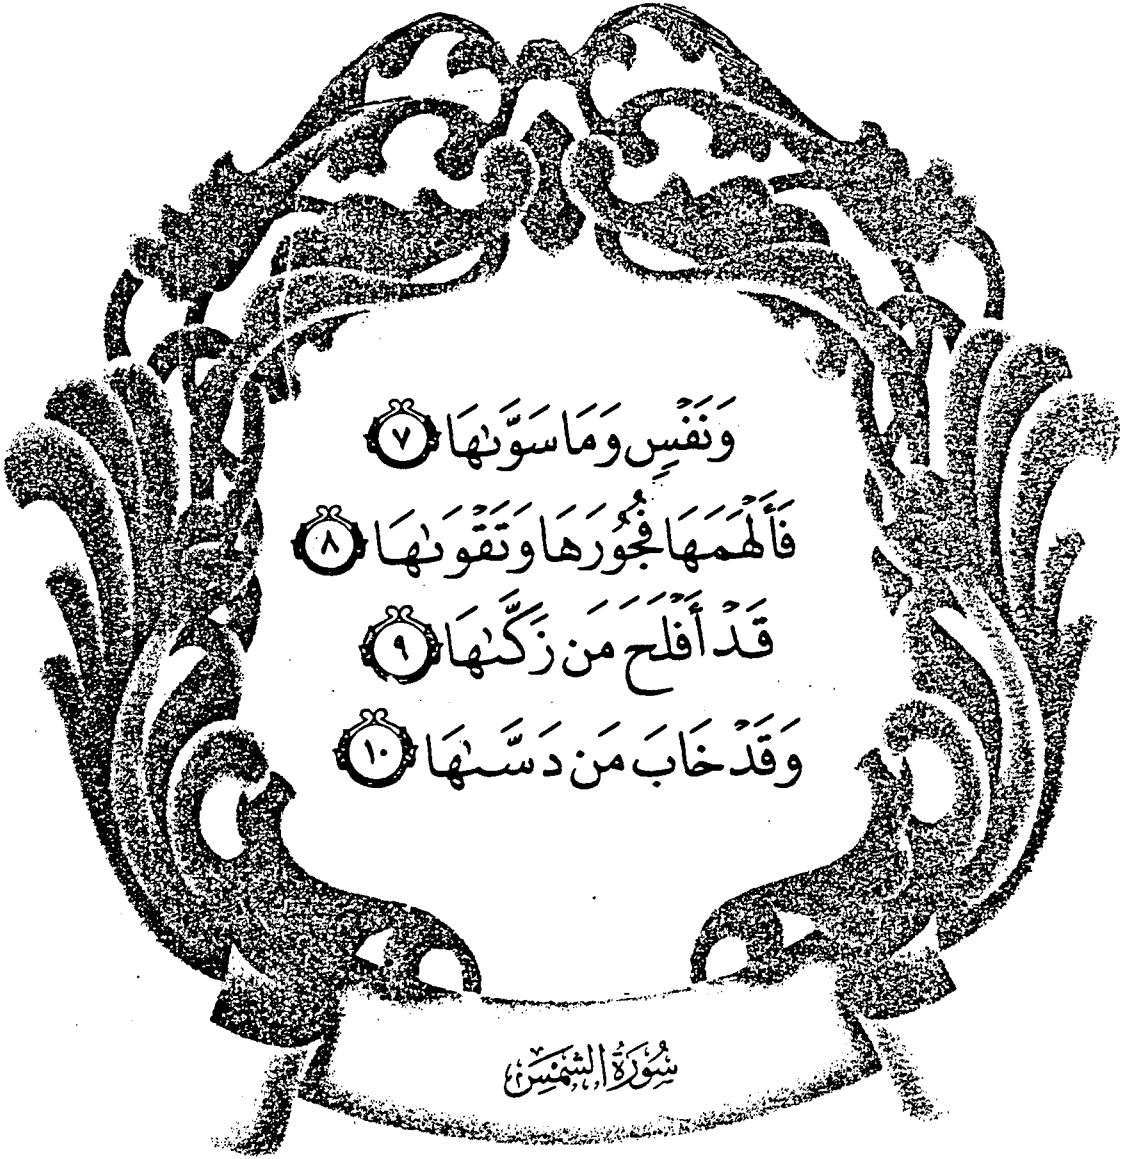 وَنَفْسٍ وَمَا سَوَّىٰهَا ٧
فَأَلْهَمَهَا فُجُورَهَا وَتَقْوَىٰهَا ٨
قَدْ أَفْلَحَ مَن زَكَّىٰهَا ٩
وَقَدْ خَابَ مَن دَسَّىٰهَا ١٠
سُورَةُ الشَّمْسِ